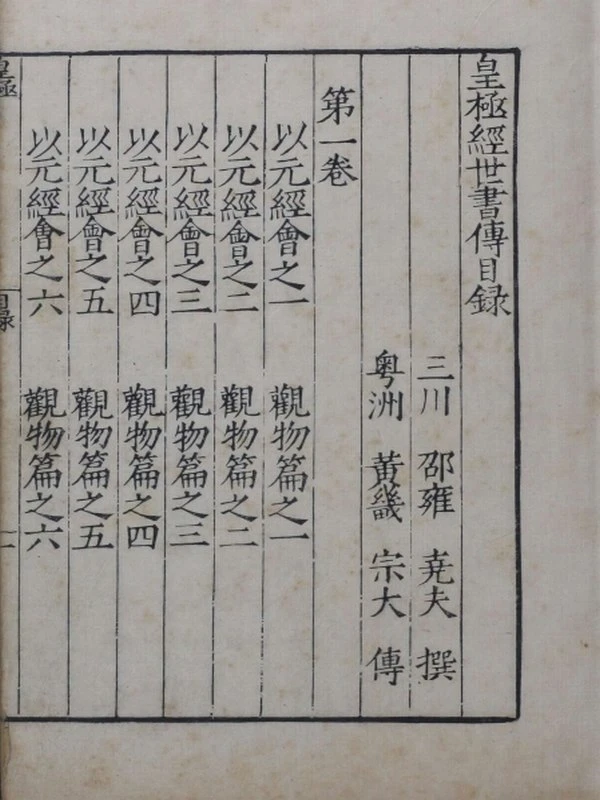 皇極經世書傳目録
三川 邵雍 尭夫 撰
粤洲 黃畿 宗大 傳
第一卷
以元經會之一 觀物篇之一
以元經會之二 觀物篇之二
以元經會之三 觀物篇之三
以元經會之四 觀物篇之四
以元經會之五 觀物篇之五
以元經會之六 觀物篇之六
皇極
目録